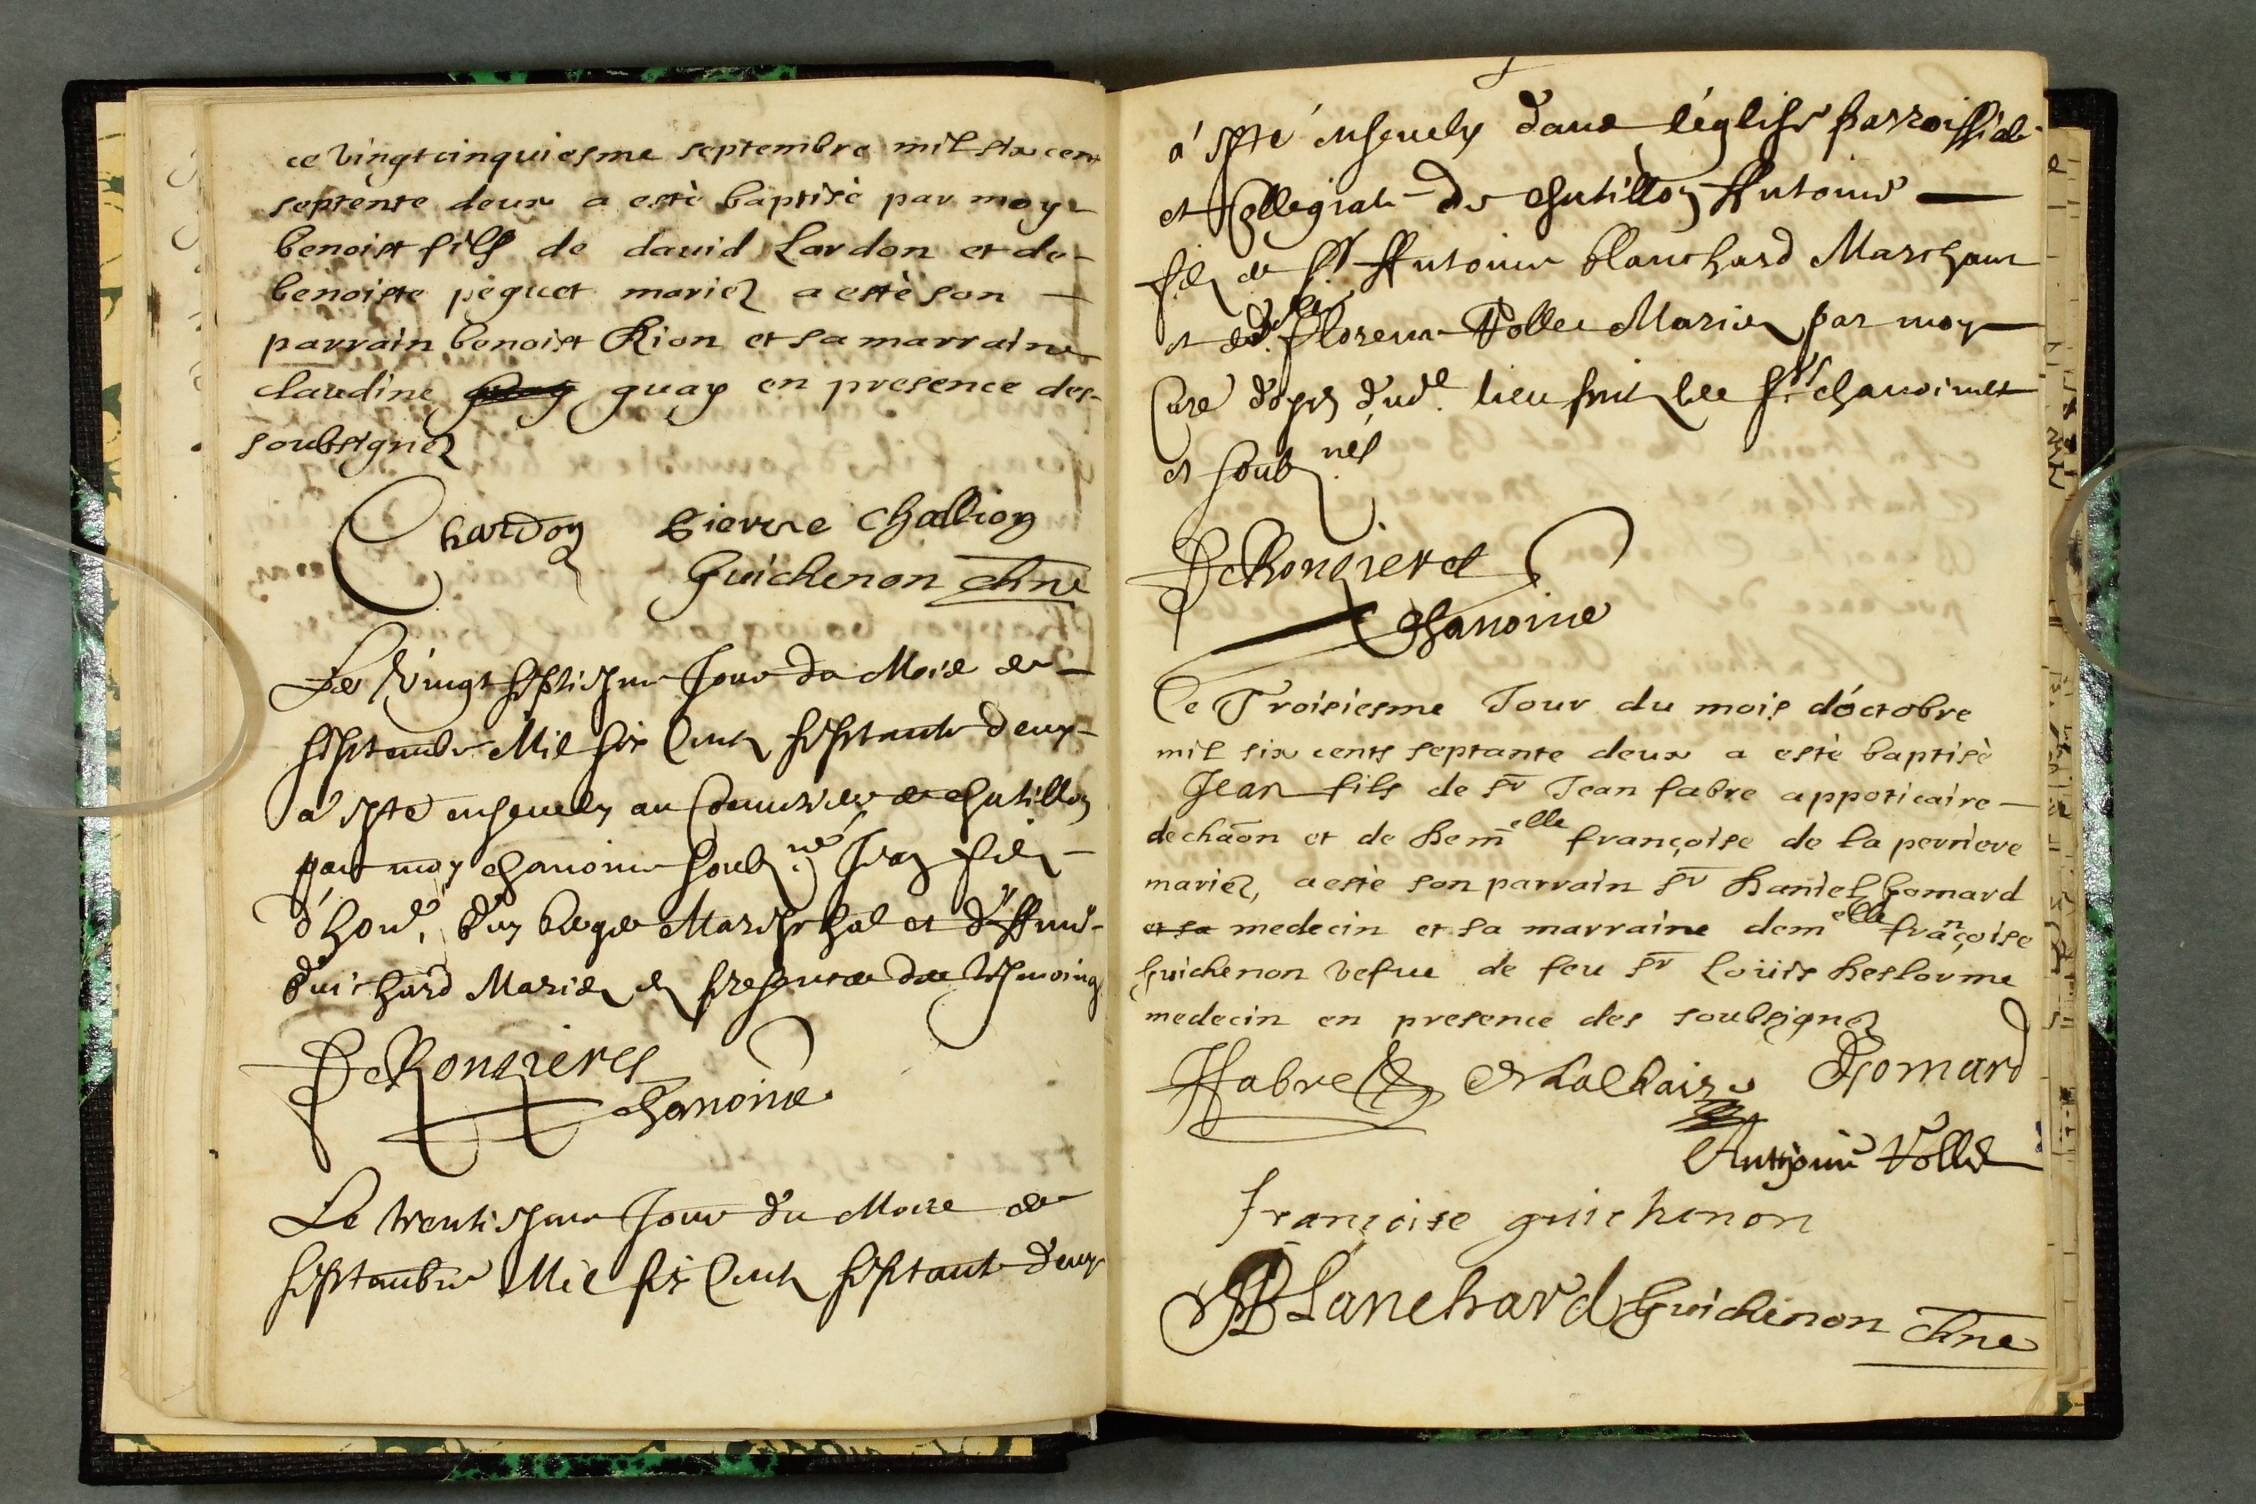 ce vingtcinquiesme septembre mil six cent
septente deux a estè baptisè par moy
benoist fils de dauid Lardon et de
benoiste peguet mariez a estè son
parrain benoist Rion et sa marraine
claudine guay en presence des
soubsignez
Chardon pierre Challion
Guichenon chne
Le Vingt septiesme Jour du Mois de
septembre Mil six Cent septante deux
a esté enseuely au Cemetiere de chatillon
par moy chanoine soubz.né Jean filz
d'hon. Marischal et
Guichard Mariez en presence des tesmoings
De Ronzieres
chanoine
Le trentiesme Jour du Mois de
septembre Mil six Cent septante deux
a esté enseuely dans l'églisse parroissiale
et Collegiate de chatillon Antoine
filz de Sr Antoine blanchard Marchant
et de dlle florence Vollee Mariez par moy
Curé dud. lieu srs chanoines
et soubz.nés
De Ronzieres
Chanoine
Ce Troisiesme Jour du mois d'octobre
mil six cents septante deux a estè baptisè
Jean fils de sr Jean fabre appoticaire
de chãon et de demelle françoise de la perriere
mariez, a estè son parrain sr daniel Gomard
et sa medecin et sa marraine demelle françoise
Guichenon vefue de feu sr Loüis deslorme
medecin en presence des soubsignez
Fabre Gomard
Anthoine Vollee
françoise guichenon
Blanchard Guichenon chne